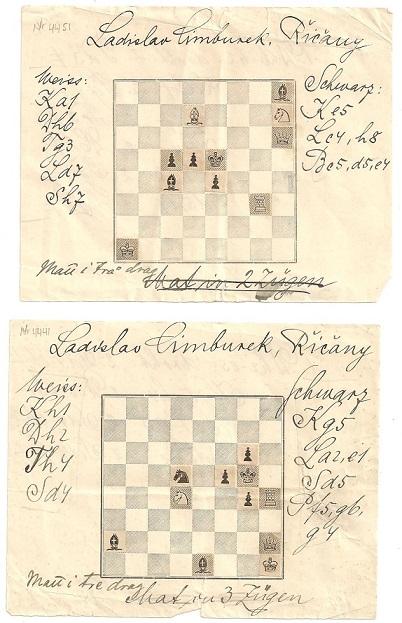 Nr 4451
Ladislav Cimburek, Říčany
Weiss:
Ka1
Dh6
Tg3
Ld7
Sh7
Schwarz:
Ke5
Lc4, h8
Bc5, d5, e4
Matt i två drag
Mat in 2 Zügen
Nr 4441
Ladislav Cimburek, Říčany
Weiss:
Kh1
Dh2
Th4
Sd4
Schwarz
Kg5
La2, e1
Sd5
Pf5, g6,
g4
Matt i tre drag
Mat in 3 Zügen